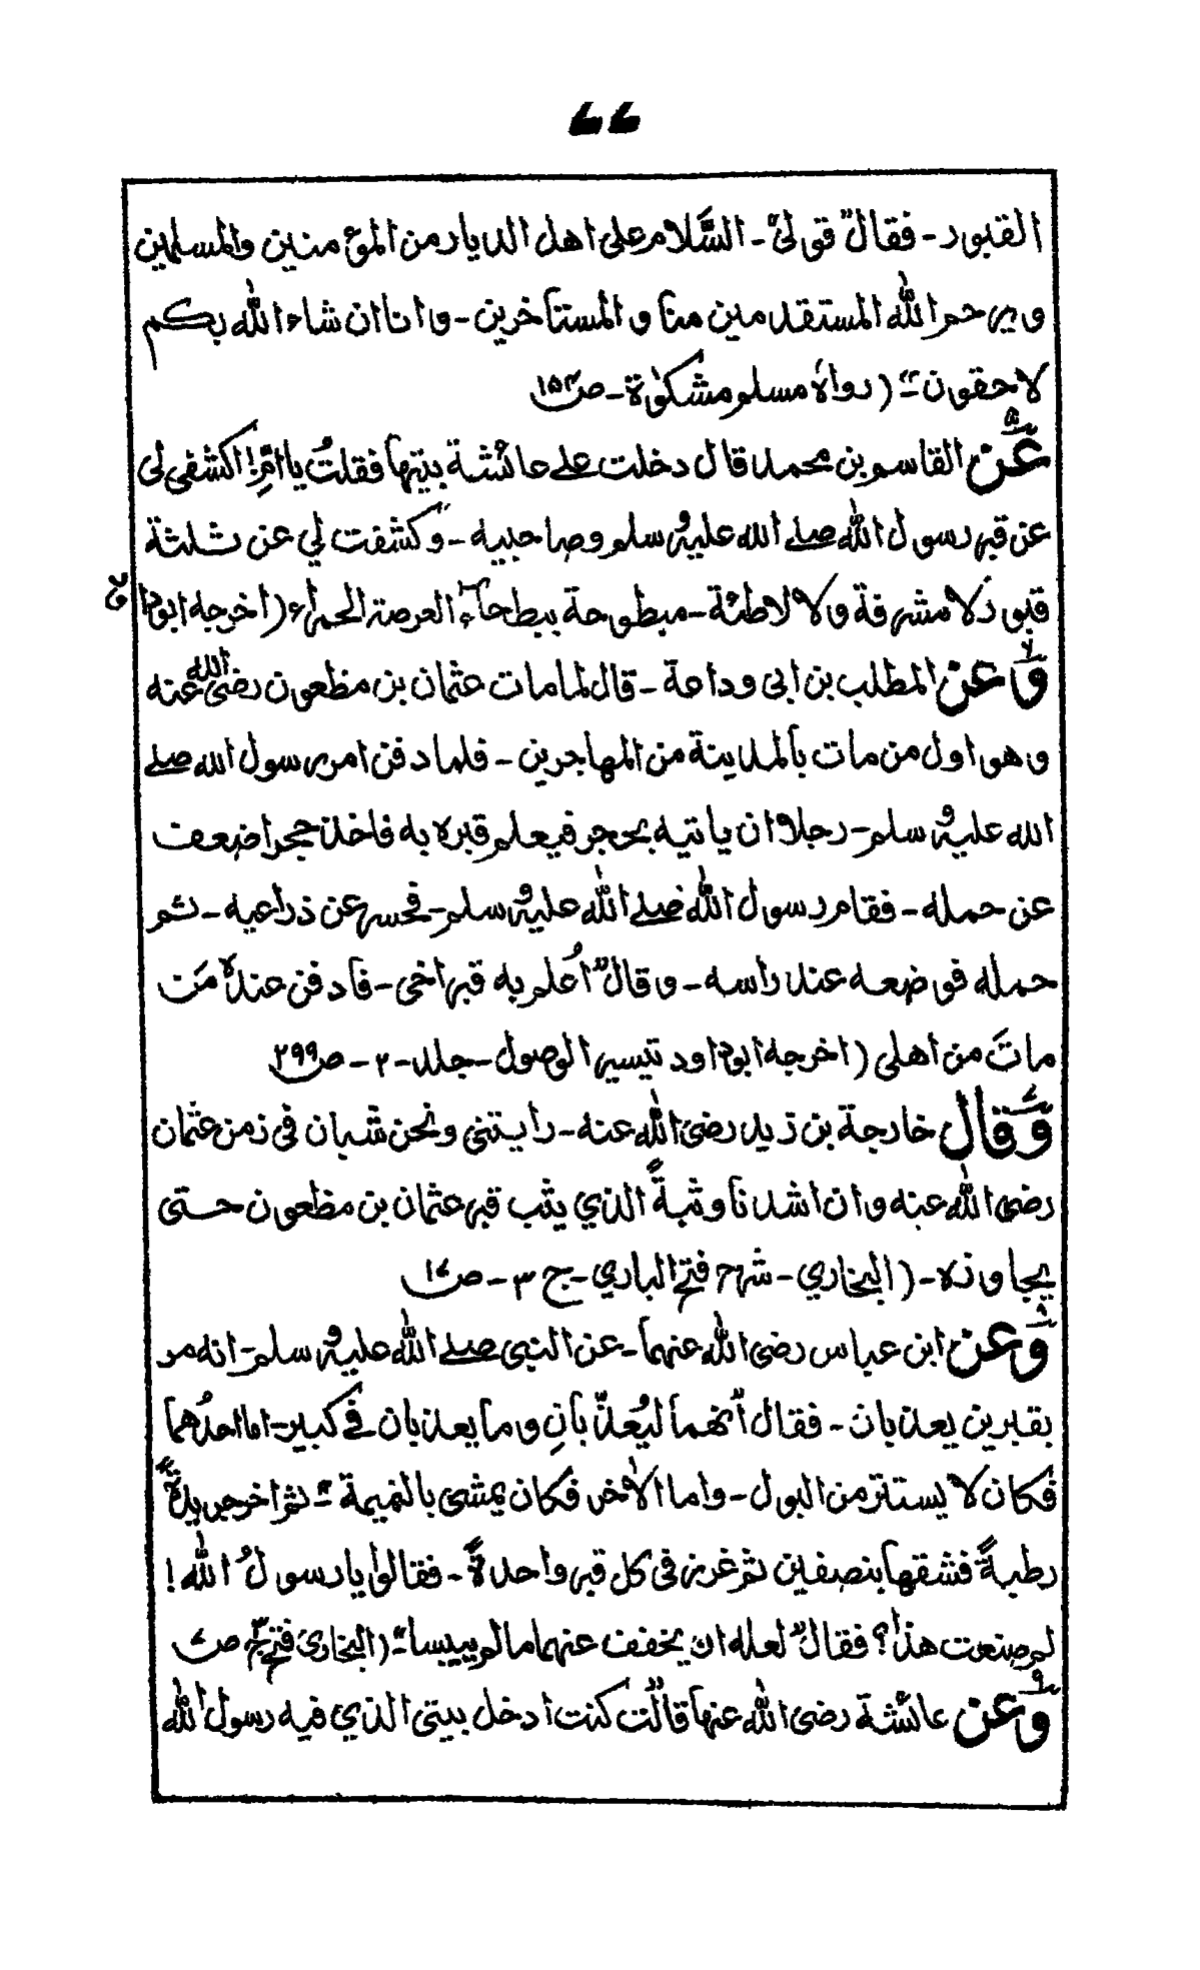 ٦٦
القبور ـ فقال" قولی" ـ السَّلام علی اهل الدیار من المؤمنین والمسلمین
ویرحم اللّٰه المستقدمین منا و المستأخرین ـ وانا ان شاء اللّٰه بکم
لاحقون" ـ (رواهٗ مسلم مشکوٰة ـ ص۱۵۴
عَن القاسم بن محمد قال دخلت علے عائشة بیتها فقلتُ یا امِّ! اکشفی لی
عن قبر رسول اللّٰه صلے الله علیه وسلم وصاحبیه ـ وکشفت لي عن ثلثة
قبور لا مشرفة ولا لاطئة ـ مبطوحة ببطحآء العرصة الحمراء (اخرجه ابوداؤد
وَعن المطلب بن ابی وداعة ـ قال لما مات عثمان بن مظعون رضی الله عنه
وهو اول من مات بالمدینة من المهاجرین ـ فلما دفن امر رسول الله صلے
الله علیه وسلم ـ رجلا ان یاتیه بحجر فیعلم قبره به فاخذ حجرا ضعف
عن حمله ـ فقام رسول اللّٰه صلے اللّٰه علیه وسلم ـ فحسر عن ذراعیه ـ ثم
حمله فوضعه عند راسه ـ وقال" اُعلم به قبر اخی ـ فادفن عندهٗ مَن
ماتَ من اهلی (اخرجه ابوداود تیسیر الوصول ـ جلد ـ ۲ ـ ص۲۹۹
وَقال خارجة بن زید رضی اللّٰه عنه ـ رایتنی ونحن شبان فی زمن عثمان
رضی اللّٰه عنه وان اشدنا وثبةً الذي یثب قبر عثمان بن مظعون حتی
یجاوزه ـ (البخاري ـ شرح فتح الباري ـ ج ۳ ـ ص
وَعن ابن عباس رضی اللّٰه عنهما ـ عن النبی صلے اللّٰه علیه وسلم ـ انه مر
بقبرین یعذبان ـ فقال "انهما لیُعذّبانِ وما یعذبان فی کبیر ـ اما احدُهما
فکان لا یستتر من البول ـ واما الاٰخر فکان یمشی بالنمیمة" ـ ثم اخرجریدةً
رطبةً فشقها بنصفین ثم غرز فی کل قبر واحدةً ـ فقالوا یا رسولُ اللّٰه!
لم صنعت هذا؟ فقال" لعله ان یخفف عنهما ما لم ییبسا" ـ (البخاری فتح ج۳ ص
وَعن عائشة رضی اللّٰه عنها قالت" کنت ادخل بیتی الذي فیه رسول اللّٰه